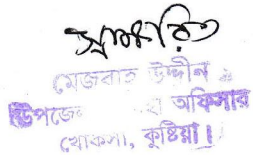 স্বাক্ষরিত
মেজবাহ উদ্দীন
উপজে অফিসার
খোকসা, কুষ্টিয়া।